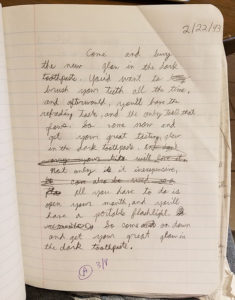 2/22/93
Come and buy
the new glow in the dark
toothpaste. You'd want to
brush your teeth all the time,
and afterward, you'll have the
refreshing taste, and the only teeth that
glows. So come now and
get your great tasting, glow
in the dark toothpaste.
Not only is it inexpensive,
can also be used as a
All you have to do is
open your mouth, and you'll
have a portable flashlight.
So come on down
and get your great glow in
the dark toothpaste.
A 3/8